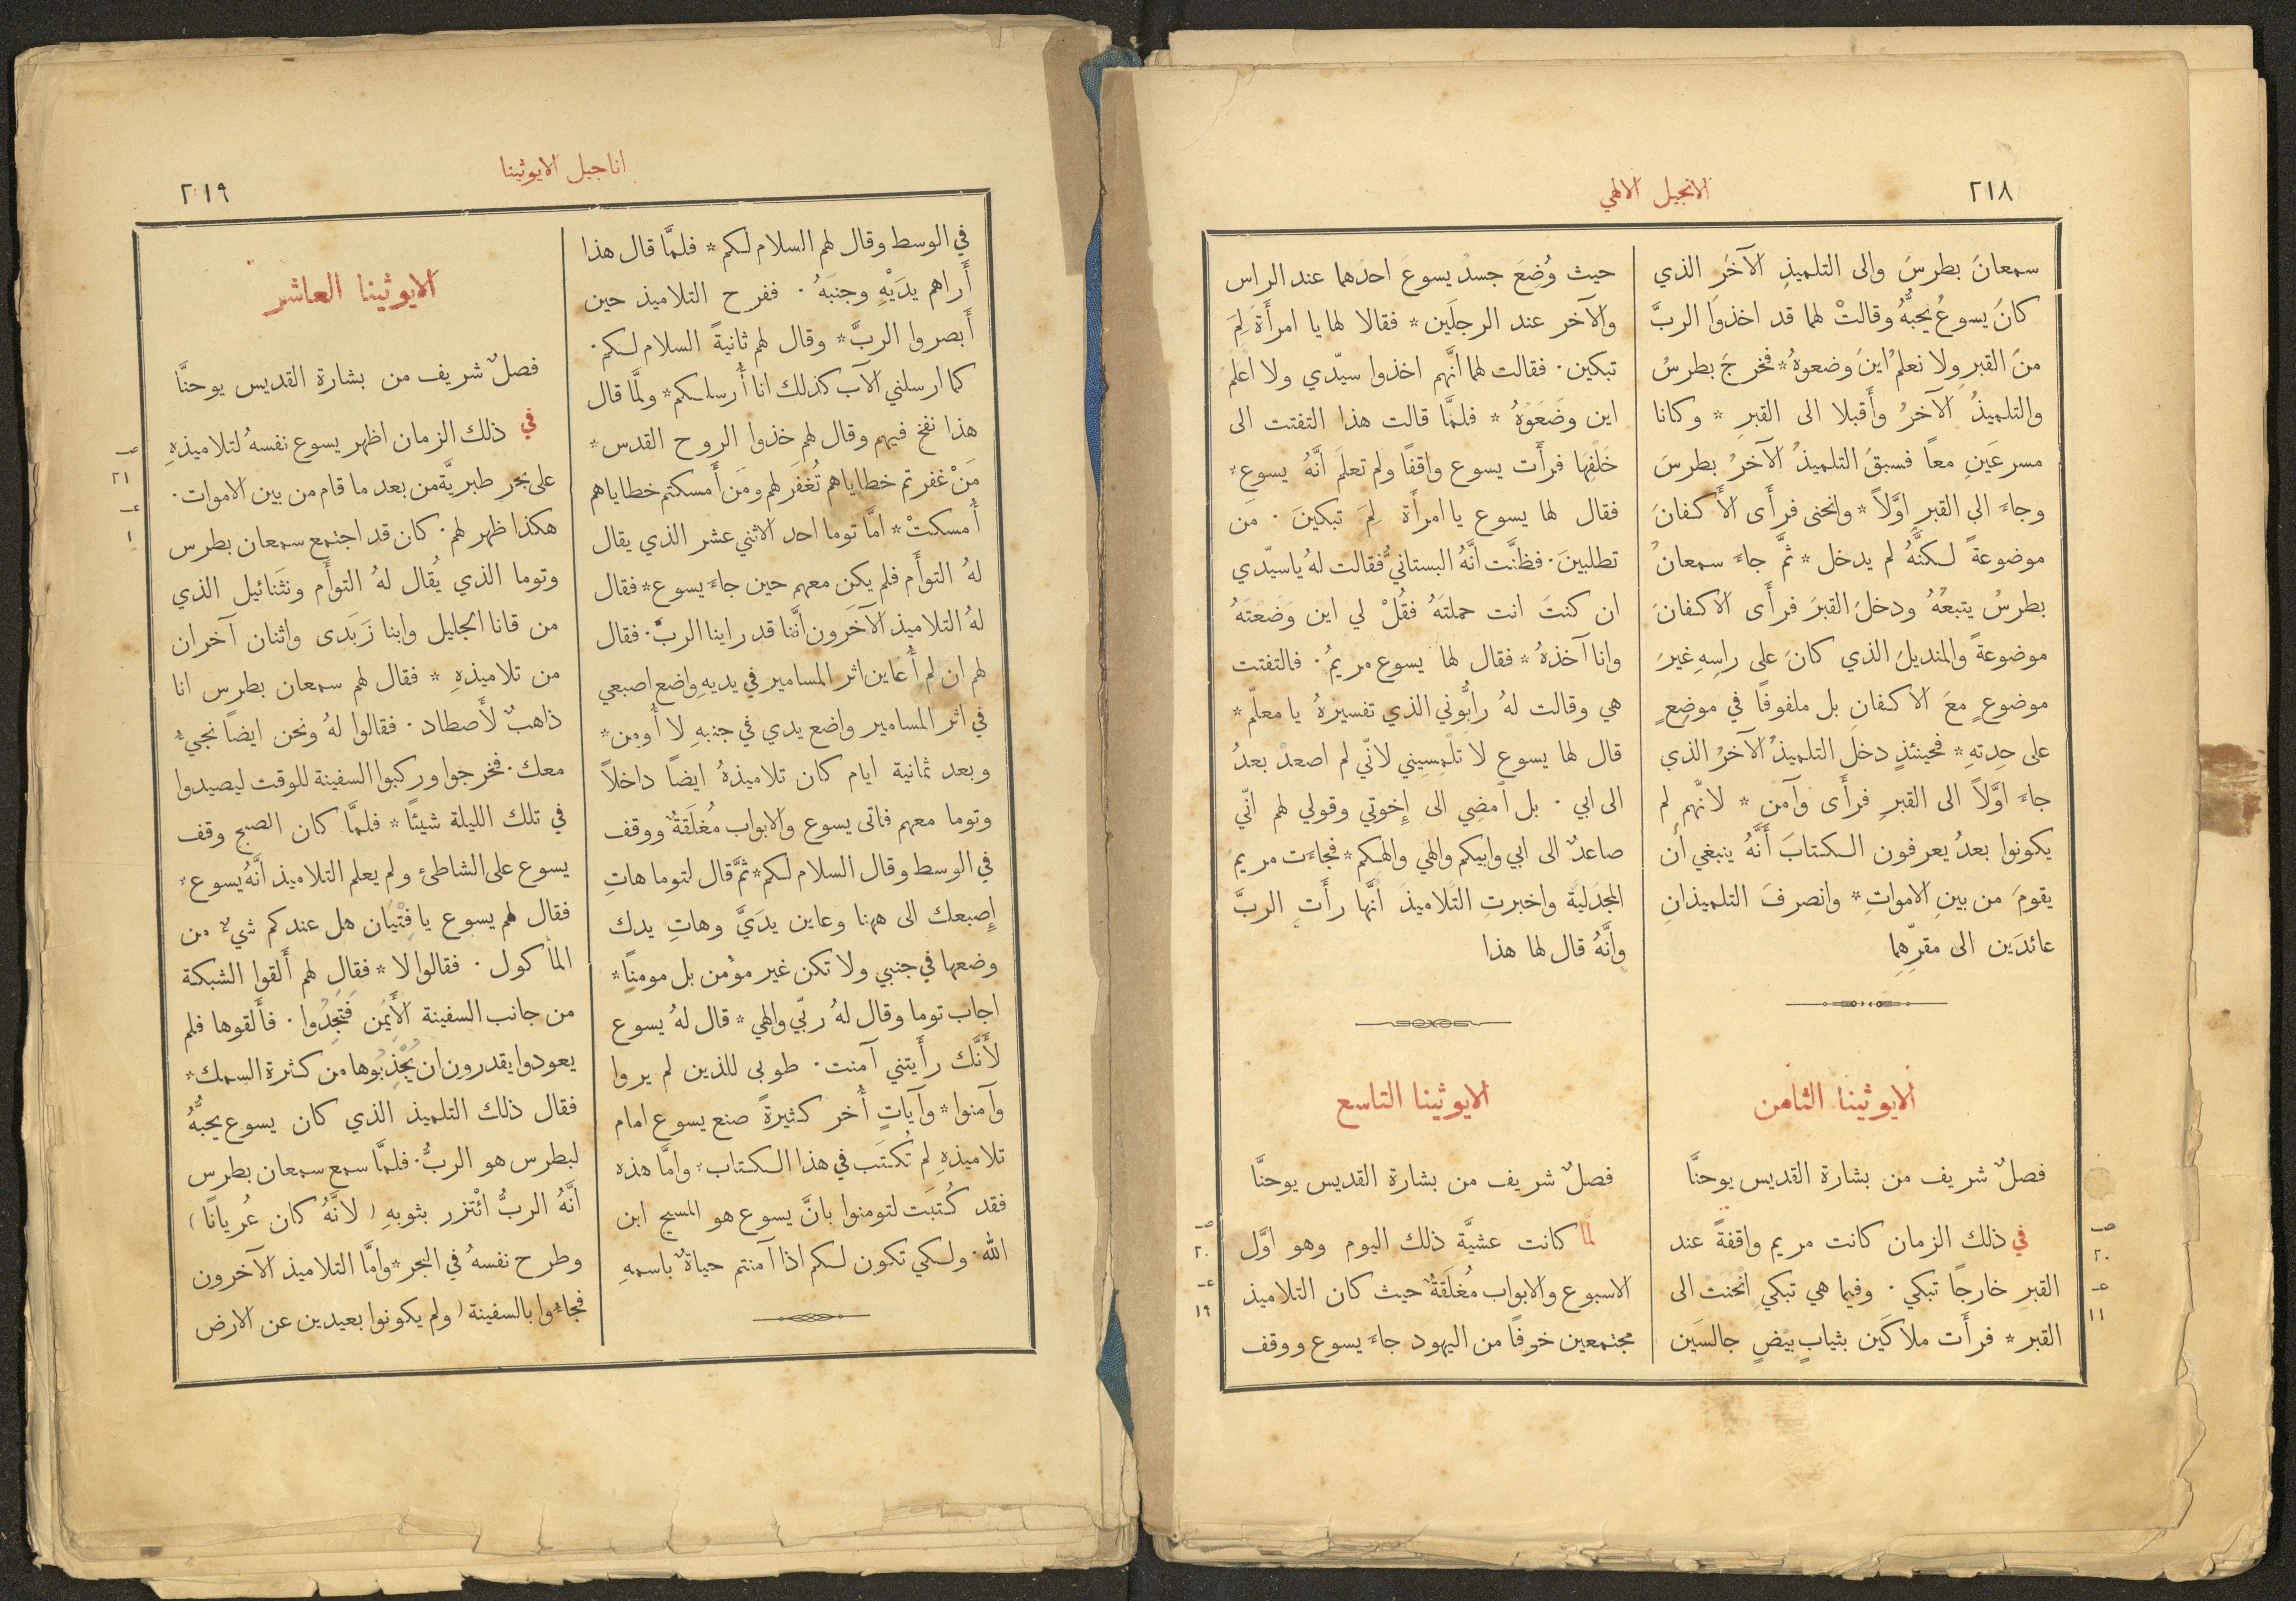 ٢١٨
الانجيل الالهي
سمعانَ بطرسَ والى التلميذِ الآخرُ الذي
كانَ يسوعُ يحبُّهُ وقالتْ لهما قد اخذوا الربَّ
منَ القبرِ ولا نعلمُ اينَ وضعوهُ * فخرجَ بطرسُ
والتلميذُ الآخرُ وأَقبلا الى القبرِ * وكانا
مسرعَينِ معاً فسبقَ التلميذُ الآخرُ بطرسَ
وجاءَ الى القبرِ اوَّلاً * وانحنى فرأَى الأَكفانَ
موضوعةً لكنَّهُ لم يدخل * ثمَّ جاءَ سمعانُ
بطرسُ يتبعُهُ ودخلَ القبرَ فرأَى الاكفانَ
موضوعةً والمنديلَ الذي كانَ على راسِهِ غيرَ
موضوعٍ معَ الاكفانِ بل ملفوفًا في موضِعٍ
على حِدتهِ * فحينئذٍ دخل التلميذُ الآخرُ الذي
جاءَ اوَّلاً الى القبرِ فرأَى وآمن * لانَّهم لم
يكونوا بعدُ يعرفون الكتابَ أَنَّهُ ينبغي أن
يقومَ من بينِ الاموات * وانصرفَ التلميذانِ
عائدَين الى مقرِّهما
الايوثينا الثامن
فصلٌ شريف من بشارة القديس يوحنَّا
في ذلك الزمان كانت مريم واقفةً عند
القبر خارجًا تبكي . وفيما هي تبكي انحنتْ الى
القبر * فرأَت ملاكَين بثيابٍ بيضٍ جالسَين
صـ
٢٠
عـ
١١
حيث وُضِعَ جسدُ يسوعَ احدَهما عند الراس
والآخر عند الرجلَين * فقالا لها يا امرأَة لِمَ
تبكين . فقالت لهما انَّهم اخذوا سيّدي ولا اعلَم
اين وضَعَوْهُ * فلمَّا قالت هذا التفتت الى
خَلْفِها فرأَت يسوع واقفًا ولم تعلَم انَّهُ يسوع *
فقال لها يسوع يا امرأَة لِمَ تبكينَ . مَن
تطلبينَ . فظنَّت انَّهُ البستانيُّ فقالت لهُ ياسيّدي
ان كنتَ انت حملتَهُ فقُلْ لي اين وَضَعْتَهُ
وانا آخذهُ * فقال لها يسوع مريمُ . فالتفتت
هي وقالت لهُ رابُّوني الذي تفسيرهُ يا معلّم *
قال لها يسوع لا تلْمِسِيني لانّي لم اصعدْ بعدُ
الى ابي . بل امضِي الى إِخوتي وقولي لهم انّي
صاعدٌ الى ابي وابيكم والهي والهكم * فجاءَت مريم
المجدليَة واخبرتِ التلاميذَ انَّها رأَت الربَّ
وأَنَّهُ قال لها هذا
الايوثينا التاسع
فصلٌ شريف من بشارة القديس يوحنَّا
لما كانت عشيَّة ذلك اليوم وهو اوَّل
الاسبوع والابواب مُغلَقةٌ حيث كان التلاميذ
مجتمعين خوفًا من اليهود جاءَ يسوع ووقف
صـ
٢٠
عـ
١٩
اناجيل الايوثينا
٢١٩
في الوسط وقال لهم السلام لكم * فلمَّا قال هذا
أَراهم يدَيْهِ وجنبَهُ . ففرح التلاميذ حين
أَبصروا الربَّ * وقال لهم ثانيةً السلام لكم .
كما ارسلني الآب كذلك انا أُرسلكم * ولمَّا قال
هذا نفخ فيهم وقال لهم خذوا الروح القدس *
مَنْ غفرتم خطاياهم تُغفَر لهم ومَن أَمسكتم خطاياهم
أُمسكتْ * امَّا توما احد الاثني عشر الذي يقال
لهُ التوأَم فلم يكن معهم حين جاءَ يسوع * فقال
لهُ التلاميذ الآخَرون انَّنا قد راينا الربَّ . فقال
لهم ان لم أُعاين اثر المسامير في يديهِ واضع اصبعي
في اثر المسامير واضع يدي في جنبهِ لا أُومِن *
وبعد ثمانية ايام كان تلاميذهُ ايضاً داخلاً
وتوما معهم فاتى يسوع والابواب مُغلَقةٌ ووقف
في الوسط وقال السلام لكم * ثمَّ قال لتوما هاتِ
إِصبعك الى ههنا وعاين يدَيَّ وهاتِ يدك
وضعها في جنبي ولا تكن غير مؤمن بل مومنًا *
اجاب توما وقال لهُ ربّي والهي * قال لهُ يسوع
لأَنَّك رأَيتني آمنت . طوبى للذين لم يروا
وآمنوا * وآياتٍ أُخر كثيرةً صنع يسوع امام
تلاميذهِ لم تُكتَب في هذا الكتاب * وامَّا هذه
فقد كُتبَت لتومنوا بانَّ يسوع هو المسيح ابن
الله . ولكي تكون لكم اذا آمنتم حياةٌ باسمهِ
الايوثينا العاشر
فصلٌ شريف من بشارة القديس يوحنَّا
في ذلك الزمان اظهر يسوع نفسهُ لتلاميذهِ
على بحر طبريَّة من بعد ما قام من بين الاموات .
هكذا ظهر لهم . كان قد اجتمع سمعان بطرس
وتوما الذي يُقال لهُ التوأَم ونثَنائيل الذي
من قانا الجليل وابنا زَبَدى واثنان آخران
من تلاميذهِ * فقال لهم سمعان بطرس انا
ذاهبٌ لأَصطاد . فقالوا لهُ ونحن ايضاً نجيء
معك . فخرجوا وركبوا السفينة للوقت ليصيدوا
في تلك الليلة شيئًا * فلمَّا كان الصبح وقف
يسوع على الشاطئ ولم يعلم التلاميذ انَّهُ يسوع *
فقال لهم يسوع يا فِتْيَان هل عندكم شيءٌ من
المأكول . فقالوا لا * فقال لهم أَلقوا الشبكة
من جانب السفينة الأَيمَن فَتَجِدُوا . فأَلقوها فلم
يعودوا يقدرون ان يُجْذِبُوها من كثرة السمك *
فقال ذلك التلميذ الذي كان يسوع يحبُّهُ
لبطرس هو الربُّ . فلمَّا سمع سمعان بطرس
انَّهُ الربُّ ائْتزر بثوبهِ ( لانَّهُ كان عُريانًا )
وطرح نفسهُ في البحر * وامَّا التلاميذ الآخرون
فجاءُوا بالسفينة ( ولم يكونوا بعيدين عن الارض
صـ
٢١
عـ
١